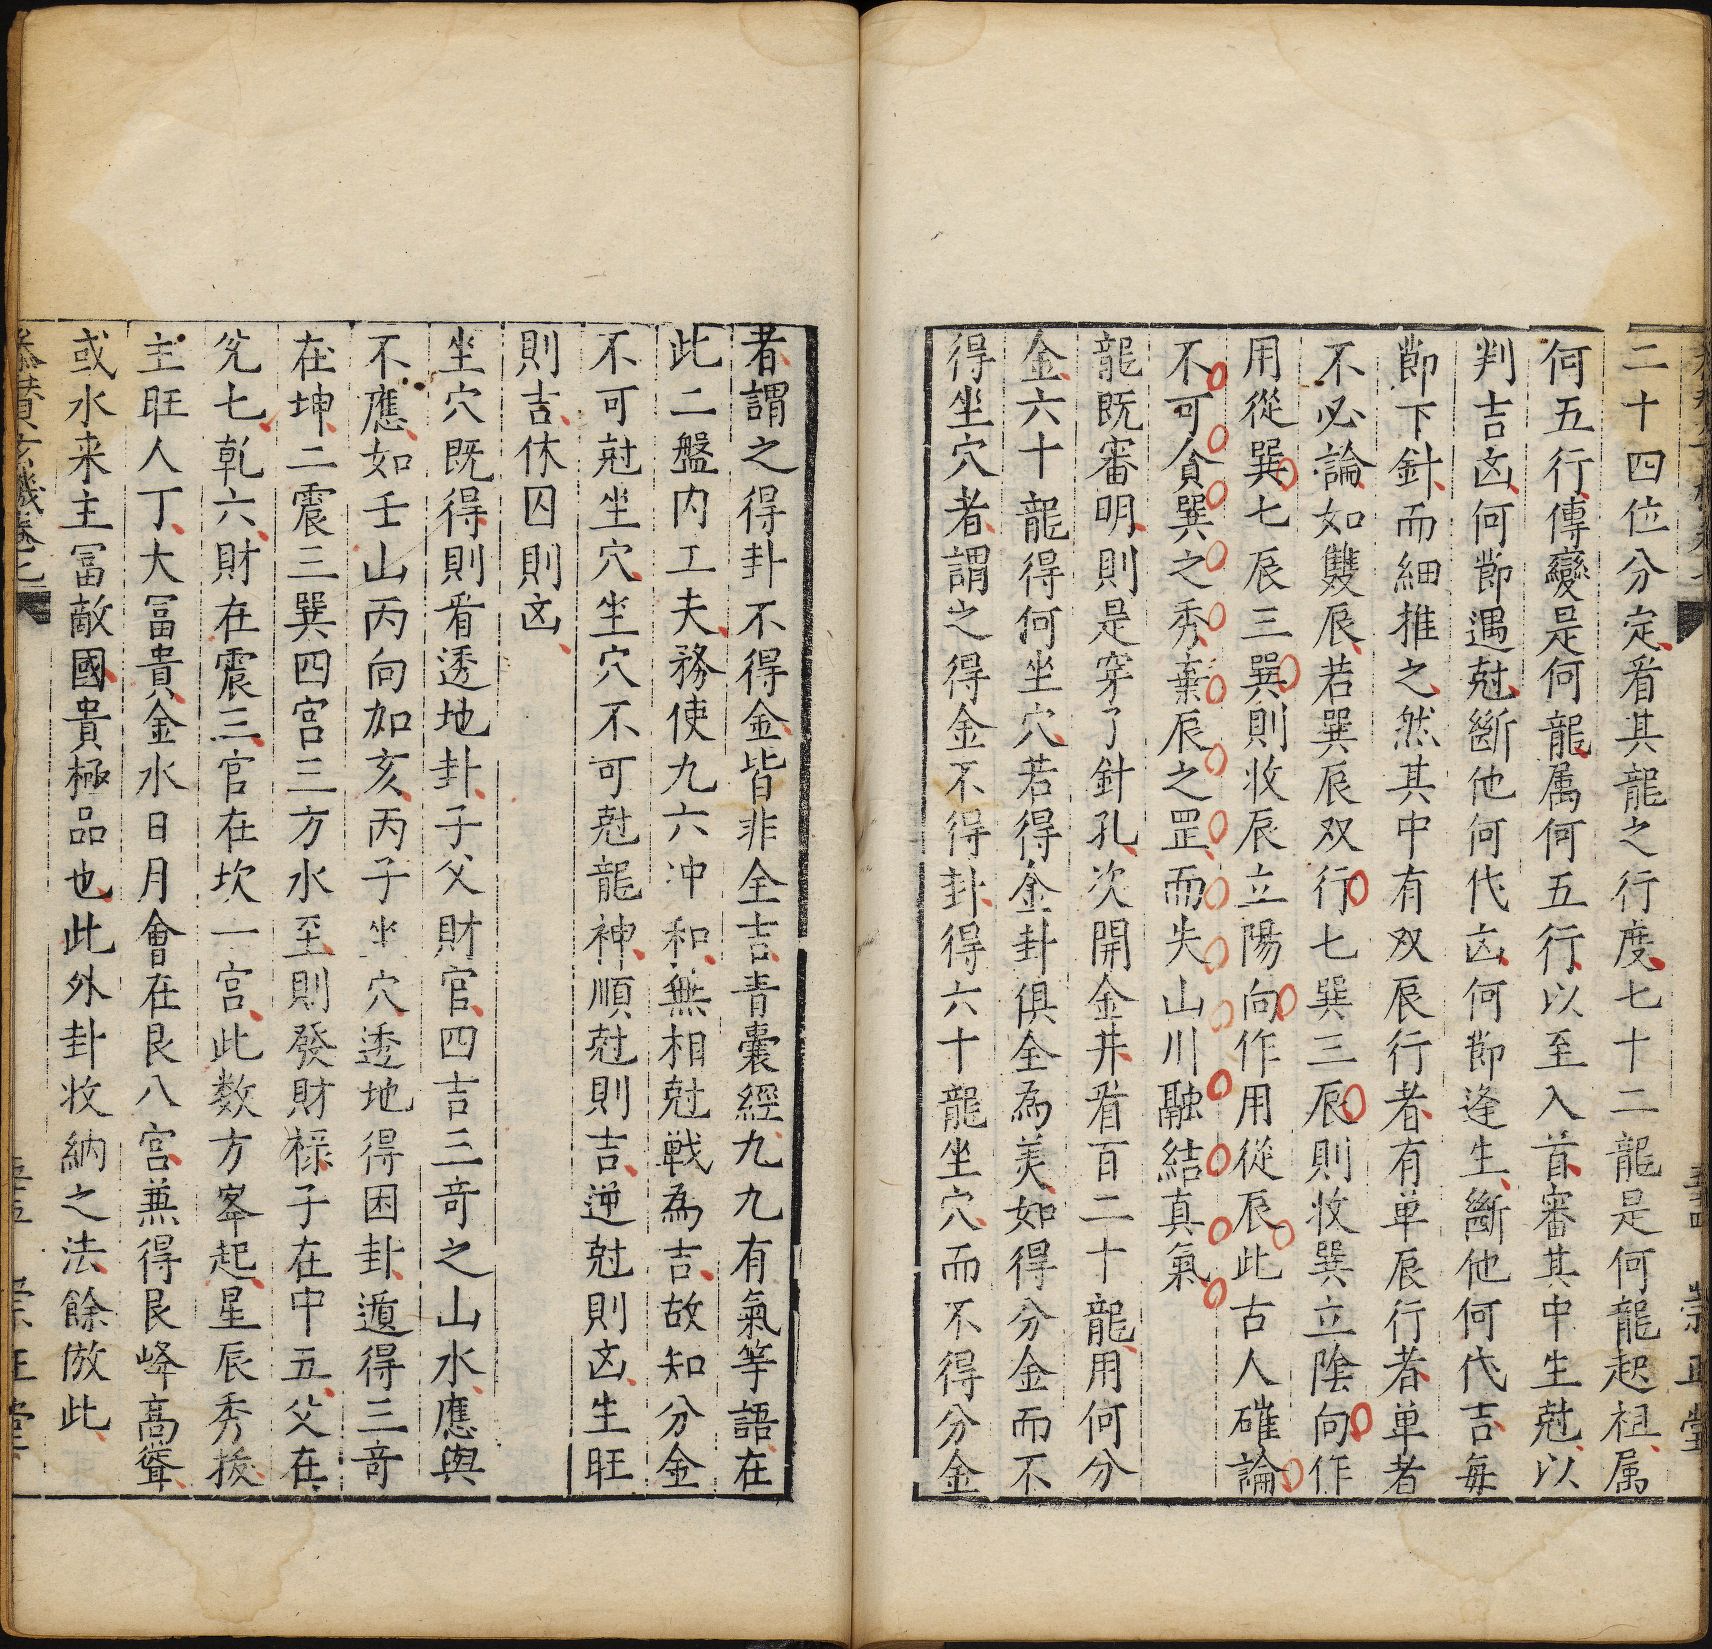 二十四位分定看其龍之行度七十二龍是何龍起祖属
何五行傳變是何龍属何五行以至入首審其中生尅以
判吉凶何莭遇尅斷他何代凶何莭逢生斷他何代吉每
莭下針而細推之然其中有双辰行者有单辰行者单者
不必論如雙辰若巽辰双行七巽三辰則收巽立陰向作
用從巽七辰三巽則收辰立陽向作用從辰此古人確論
不可貪巽之秀棄辰之罡而失山川融結真氣
龍既審明則是穿了針孔次開金井看百二十龍用何分
金六十龍得何坐穴若得金卦俱全為美如得分金而不
得坐穴者謂之得金不得卦得六十龍坐穴而不得分金
者謂之得卦不得金皆非全吉青囊經九九有氣等語在
此二盤内工夫務使九六冲和無相尅戦為吉故知分金
不可尅坐穴坐穴不可尅龍神順尅則吉逆尅則凶生旺
則吉休囚則凶
坐穴既得則看透地卦子父財官四吉三竒之山水應與
不應如壬山丙向加亥丙子坐穴透地得困卦遁得三竒
在坤二震三巽四宫三方水至則發財禄子在中五父在
兊七乹六財在震三官在坎一宫此数方峯起星辰秀拔
主旺人丁大冨貴金水日月會在艮八宫兼得艮峰高聳
或水来主冨敵國貴極品也此外卦收納之法餘倣此